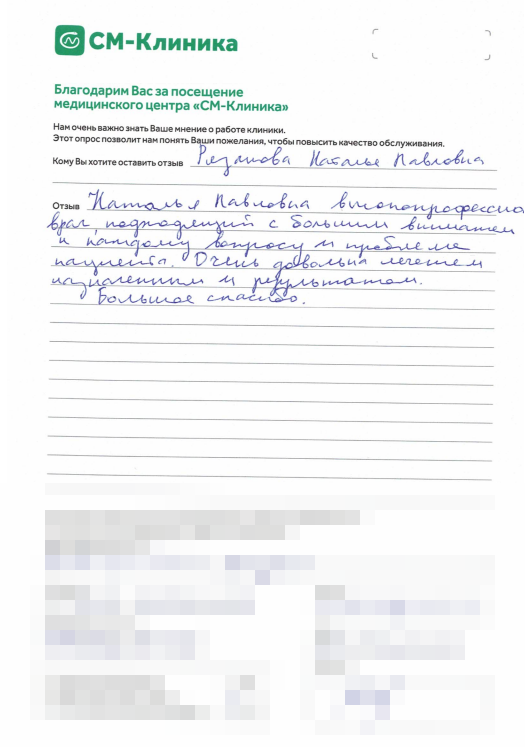 СМ-Клиника
Благодарим Вас за посещение
медицинского центра «СМ-Клиника»
Нам очень важно знать Ваше мнение о работе клиники.
Этот опрос позволит нам понять Ваши пожелания, чтобы повысить качество обслуживания.
Кому Вы хотите оставить отзыв Рязанова Наталье Павловна
Отзыв Наталья Павловна высокопрофессио
врач, подходящий с большим вниманием
к каждому вопросу и проблеме
пациента. Очень довольна лечением
назначенным и результатом.
Большое спасибо.